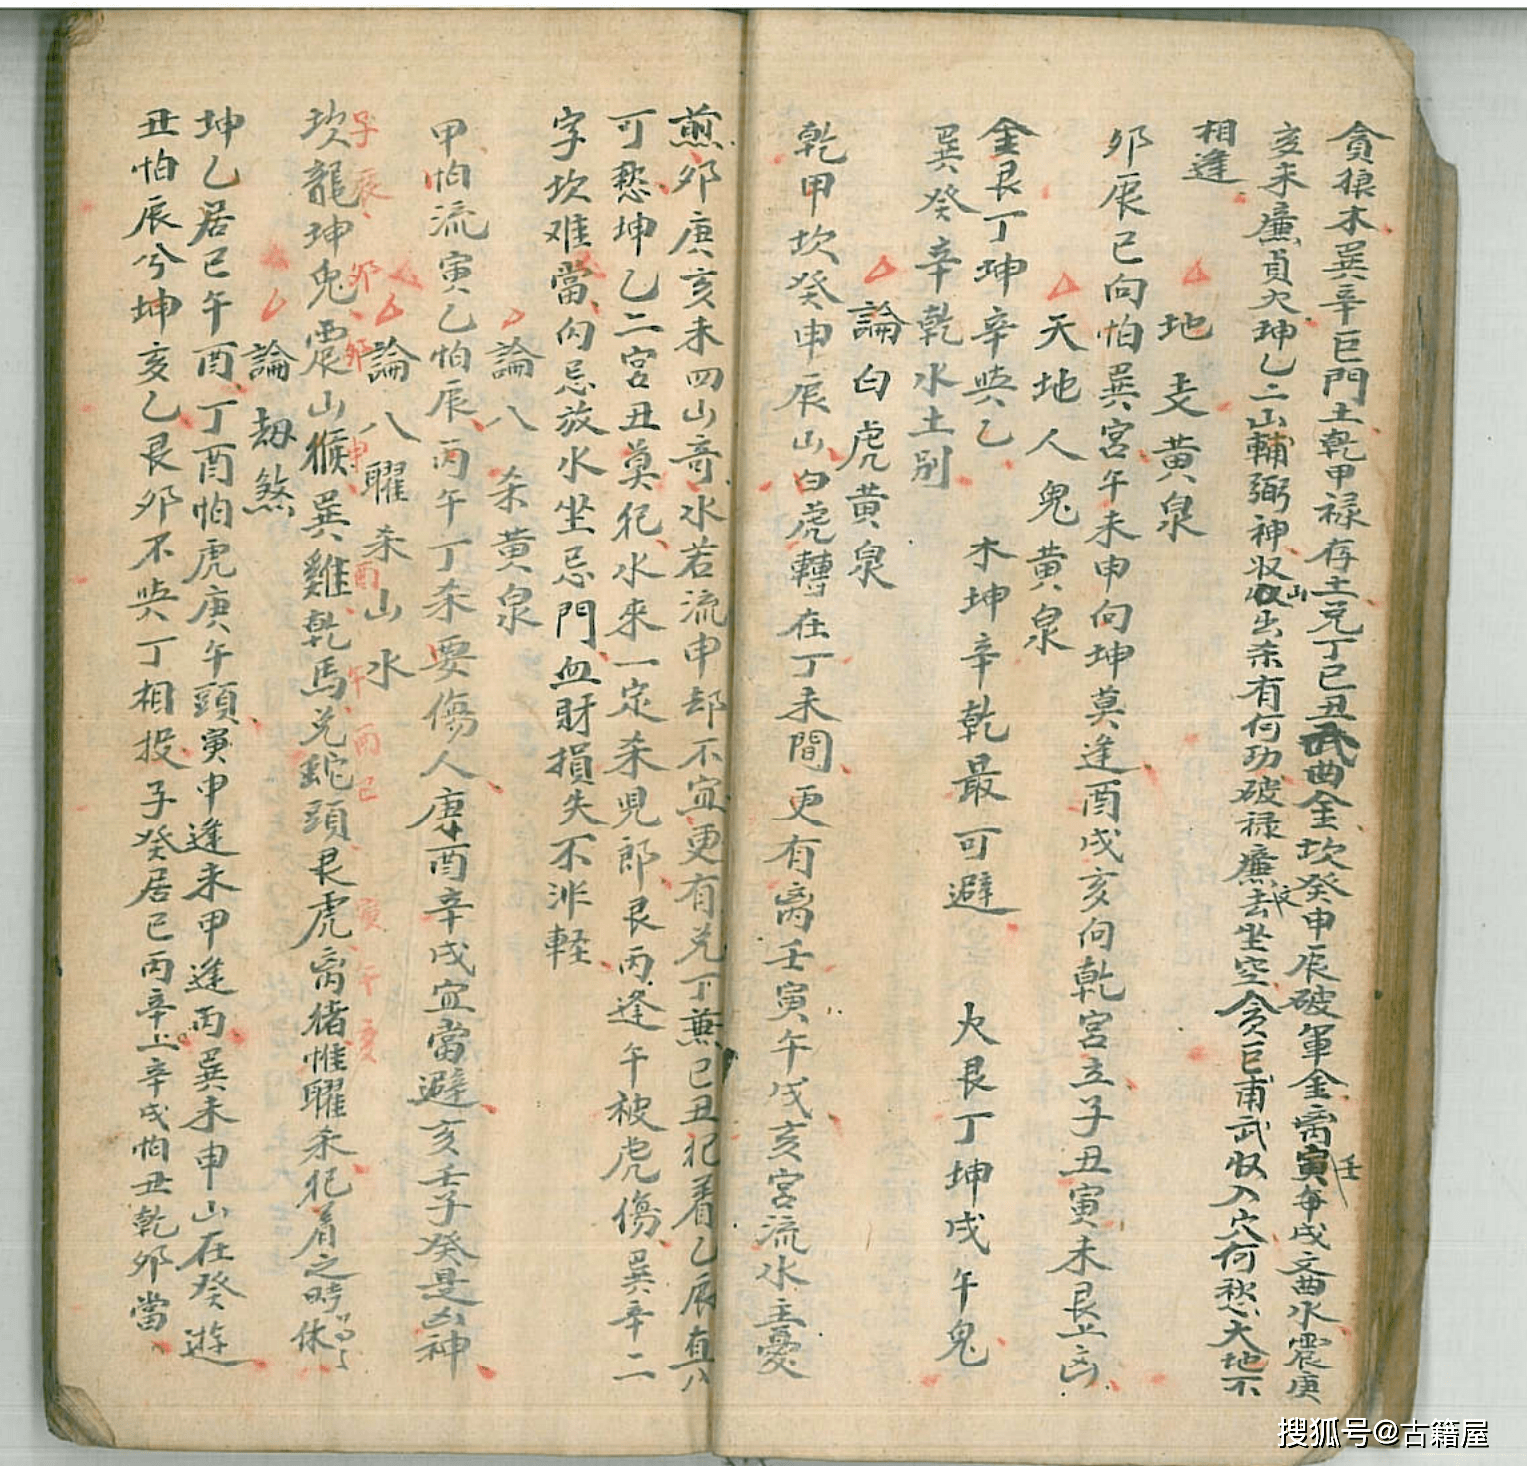 貪狼木巽辛巨門土乾甲祿存土兑丁巳丑武曲金坎癸申辰破軍金离寅午戌文曲水震庚
壬
亥未廉貞火坤乙二山輔弼神收山出杀有何功破祿廉文去坐空貪巨甫武收入穴何愁大地不
相逢
地支黃泉
夘辰巳向怕巽宫午未申向坤莫逢酉戌亥向乾宫立子丑寅未艮上凶
天地人鬼黃泉
金艮丁坤辛與乙 木坤辛乾最可避 火艮丁坤戌午鬼
巽癸辛乾水土别
論白虎黃泉
乾甲坎癸申辰山白虎轉在丁未間更有离壬寅午戌亥宫流水主憂
煎夘庚亥未四山奇水若流申却不宜更有兑丁兼巳丑犯着乙辰真八
可愁坤乙二宫丑莫犯水來一定杀児郎艮丙逢午被虎傷巽辛二
字坎难當向忌放水坐忌門血財損失不非軽
論八杀黃泉
甲怕流寅乙怕辰丙午丁杀要傷人庚酉辛戌宜當避亥壬子癸是凶神
論八曜杀山水
子辰 夘 夘 申 酉 午 酉巳 寅 午 亥
坎龍坤兎震山猴巽雞乾馬兑蛇頭艮虎离猪惟曜杀犯着之時休
論刼煞
坤乙居巳午酉丁酉怕虎庚午頭寅申逢未甲逢丙巽未申山在癸遊
丑怕辰兮坤亥乙艮夘不與丁相投子癸居巳丙辛上辛戌怕丑乾夘當
搜狐号@古籍屋